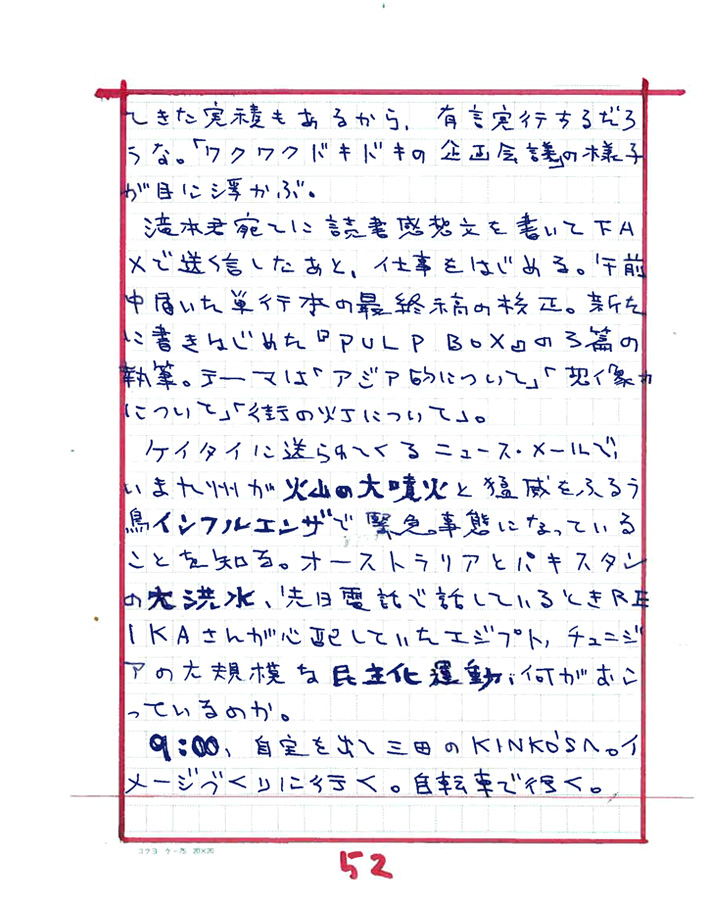 てきた実積もあるから、有言実行するだろ
うな。「ワクワクドキドキの企画会議」の様子
が目に浮かぶ。
滝本君宛てに読書感想文を書いてFA
Xで送信したあと、仕事をはじめる。午前
中届いた単行本の最終稿の校正。新た
に書きはじめた『PULP BOX』の3篇の
執筆。テーマは「アジア的について」「想像力
について」「街の灯について」。
ケイタイに送られてくるニュース・メールで、
いま九州が火山の大噴火と猛威をふるう
鳥インフルエンザで緊急事態になっている
ことを知る。オーストラリアとパキスタン
の大洪水、先日電話で話しているときRE
IKAさんが心配していたエジプト、チュニジ
アの大規模な民主化運動、何がおこ
っているのか。
9:00、自宅を出て三田のKINKO'Sへ。イ
メージづくりに行く。自転車で行く。
コクヨ ケ-75 20×20
52